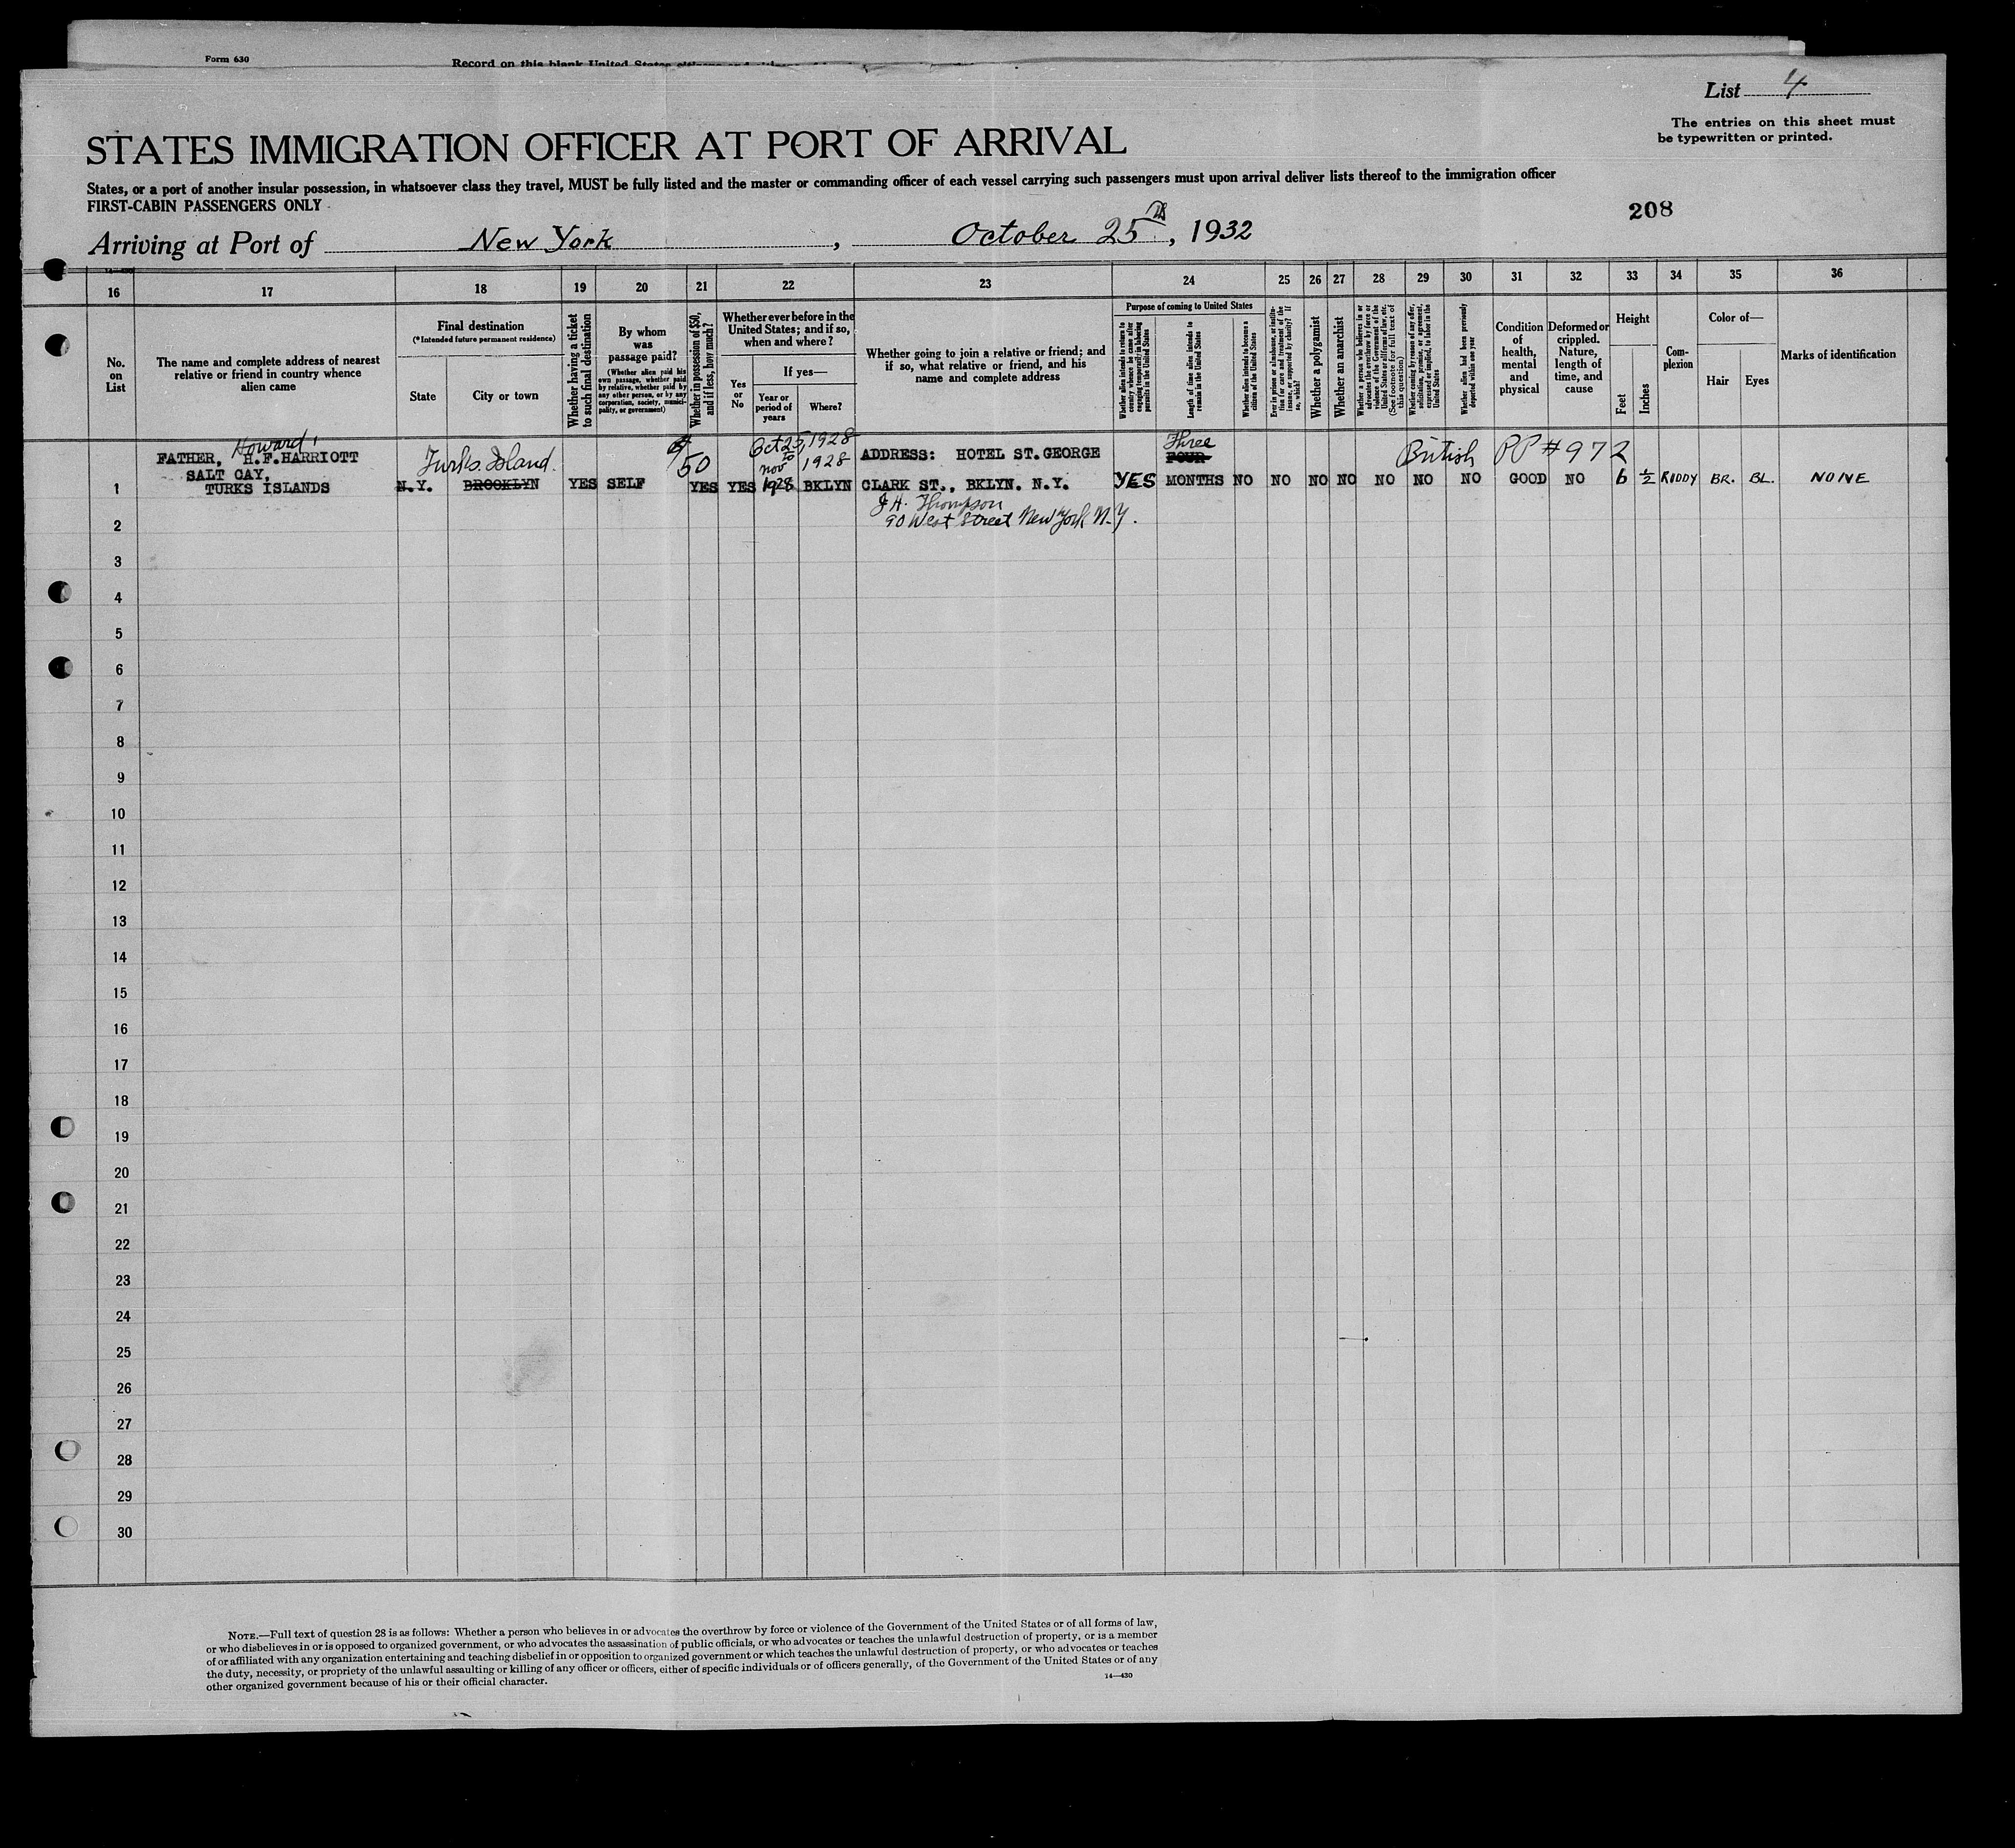 Form 630
Record on this blank United States
List 4
The entries on this sheet must
be typewritten or printed.
STATES IMMIGRATION OFFICER AT PORT OF ARRIVAL
States, or a port of another insular possession, in whatsoever class they travel, MUST be fully listed and the master or commanding officer of each vessel carrying such passengers must upon arrival deliver lists thereof to the immigration officer
FIRST-CABIN PASSENGERS ONLY
208
Arriving at Port of New York, October 25th, 1932
14—430
16 17 18 19 20 21 22 23 24 25 26 27 28 29 30 31 32 33 34 35 36
No.
on
List
The name and complete address of nearest
relative or friend in country whence
alien came
Final destination
(*Intended future permanent residence)
State
City or town
Whether having a ticket
to such final destination
By whom
was
passage paid?
(Whether alien paid his
own passage, whether paid
by relative, whether paid by
any other person, or by any
corporation, society, munici-
pality, or government)
Whether in possession of $50,
and if less, how much?
Whether ever before in the
United States; and if so,
when and where?
Yes
or
No
If yes—
Year or
period of
years
Where?
Whether going to join a relative or friend; and
if so, what relative or friend, and his
name and complete address
Purpose of coming to United States
Whether alien intends to return to
country whence he came after
engaging temporarily in laboring
pursuits in the United States
Length of time alien intends to
remain in the United States
Whether alien intends to become a
citizen of the United States
Ever in prison or almshouse, or institu-
tion for care and treatment of the
insane, or supported by charity? If
so, which?
Whether a polygamist
Whether an anarchist
Whether a person who believes in or
advocates the overthrow by force or
violence of the Government of the
United States or all forms of law, etc.
(See footnote for full text of
this question)
Whether coming by reason of any offer,
solicitation, promise, or agreement,
expressed or implied, to labor in the
United States
Whether alien had been previously
deported within one year
Condition
of
health,
mental
and
physical
Deformed or
crippled.
Nature,
length of
time, and
cause
Height
Feet
Inches
Com-
plexion
Color of—
Hair
Eyes
Marks of identification
Howard,
FATHER, H.F.HARRIOTT
SALT CAY,
TURKS ISLANDS
Turks Island.
N.Y. BROOKLYN YES SELF
$50
YES YES
Oct 25, 1928
to
Nov 1928
1928 BKLYN
ADDRESS: HOTEL ST.GEORGE
CLARK ST., BKLYN. N.Y.
J H. Thompson
90 West Street New York N.Y.
YES
Three
FOUR
MONTHS NO NO NO NO NO NO NO GOOD NO 6 ½ RUDDY BR. BL. NONE
British PP #972
1
2
3
4
5
6
7
8
9
10
11
12
13
14
15
16
17
18
19
20
21
22
23
24
25
26
27
28
29
30
NOTE.—Full text of question 28 is as follows: Whether a person who believes in or advocates the overthrow by force or violence of the Government of the United States or of all forms of law,
or who disbelieves in or is opposed to organized government, or who advocates the assassination of public officials, or who advocates or teaches the unlawful destruction of property, or is a member
of or affiliated with any organization entertaining and teaching disbelief in or opposition to organized government or which teaches the unlawful destruction of property, or who advocates or teaches
the duty, necessity, or propriety of the unlawful assaulting or killing of any officer or officers, either of specific individuals or of officers generally, of the Government of the United States or of any
other organized government because of his or their official character.
14—430